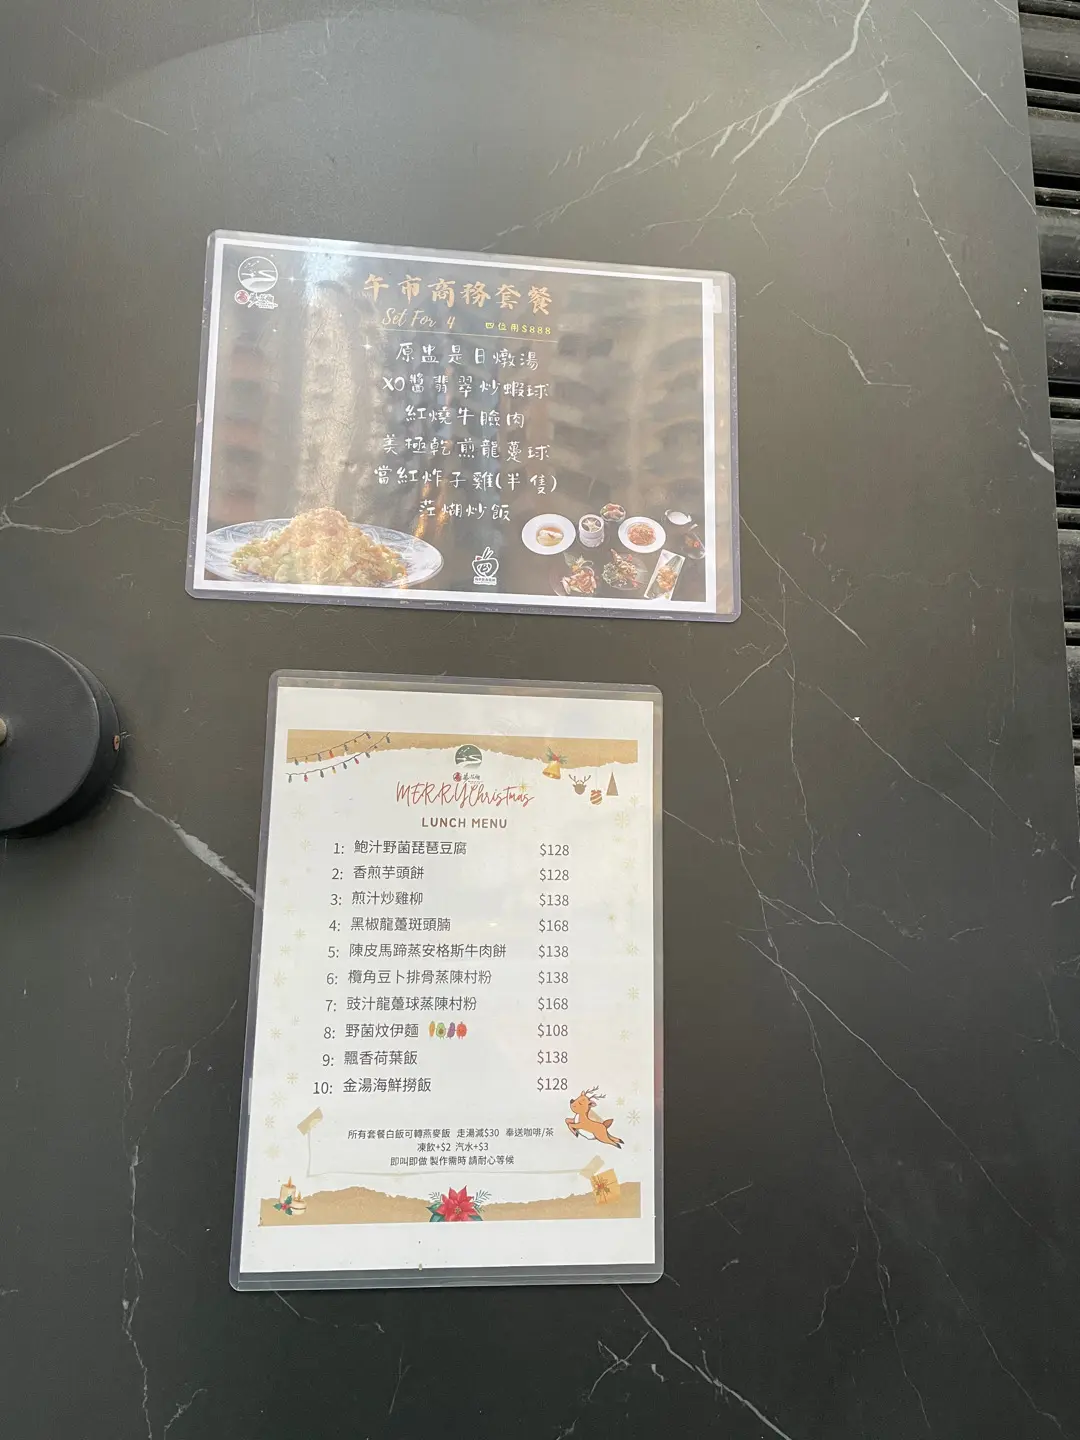 午市商務套餐
Set For 4 四位用$888
原盅是日燉湯
XO醬翡翠炒蝦球
紅燒牛臉肉
美極乾煎龍躉球
當紅炸子雞(半隻)
茳煳炒飯
MERRY Christmas
LUNCH MENU
1: 鮑汁野菌琵琶豆腐 $128
2: 香煎芋頭餅 $128
3: 煎汁炒雞柳 $138
4: 黑椒龍躉斑頭腩 $168
5: 陳皮馬蹄蒸安格斯牛肉餅 $138
6: 欖角豆卜排骨蒸陳村粉 $138
7: 豉汁龍躉球蒸陳村粉 $168
8: 野菌炆伊麵 $108
9: 飄香荷葉飯 $138
10: 金湯海鮮撈飯 $128
所有套餐白飯可轉燕麥飯 走湯減$30 奉送咖啡/茶
凍飲+$2 汽水+$3
即叫即做 製作需時 請耐心等候